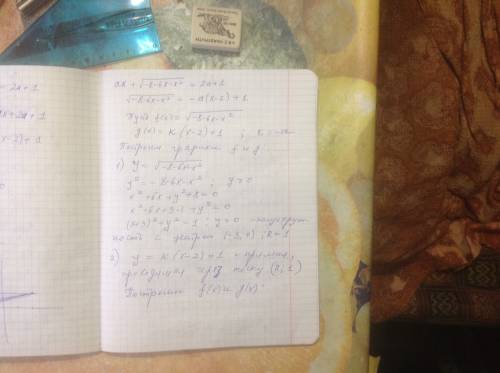 = 2a+1
ax + √-8-6x-x² = 2a+1
√-8-6x-x² = -a(x-2)+1
Пусть f(x) = √-8-6x-x²
g(x) = k(x-2)+1 ; k = -a
Построим графики f и g.
1) y = √-8-6x-x²
y² = -8-6x-x² ; y≥0
x²+6x+y²+8=0
x²+6x+9-1+y²=0
(x+3)²+y²=1 ; y≥0 - полуокруж
ность с центром (-3; 0) ; R=1
2) y = k(x-2)+1 - прямая,
проходящая через точку (2; 1)
Построим f(x) и g(x):